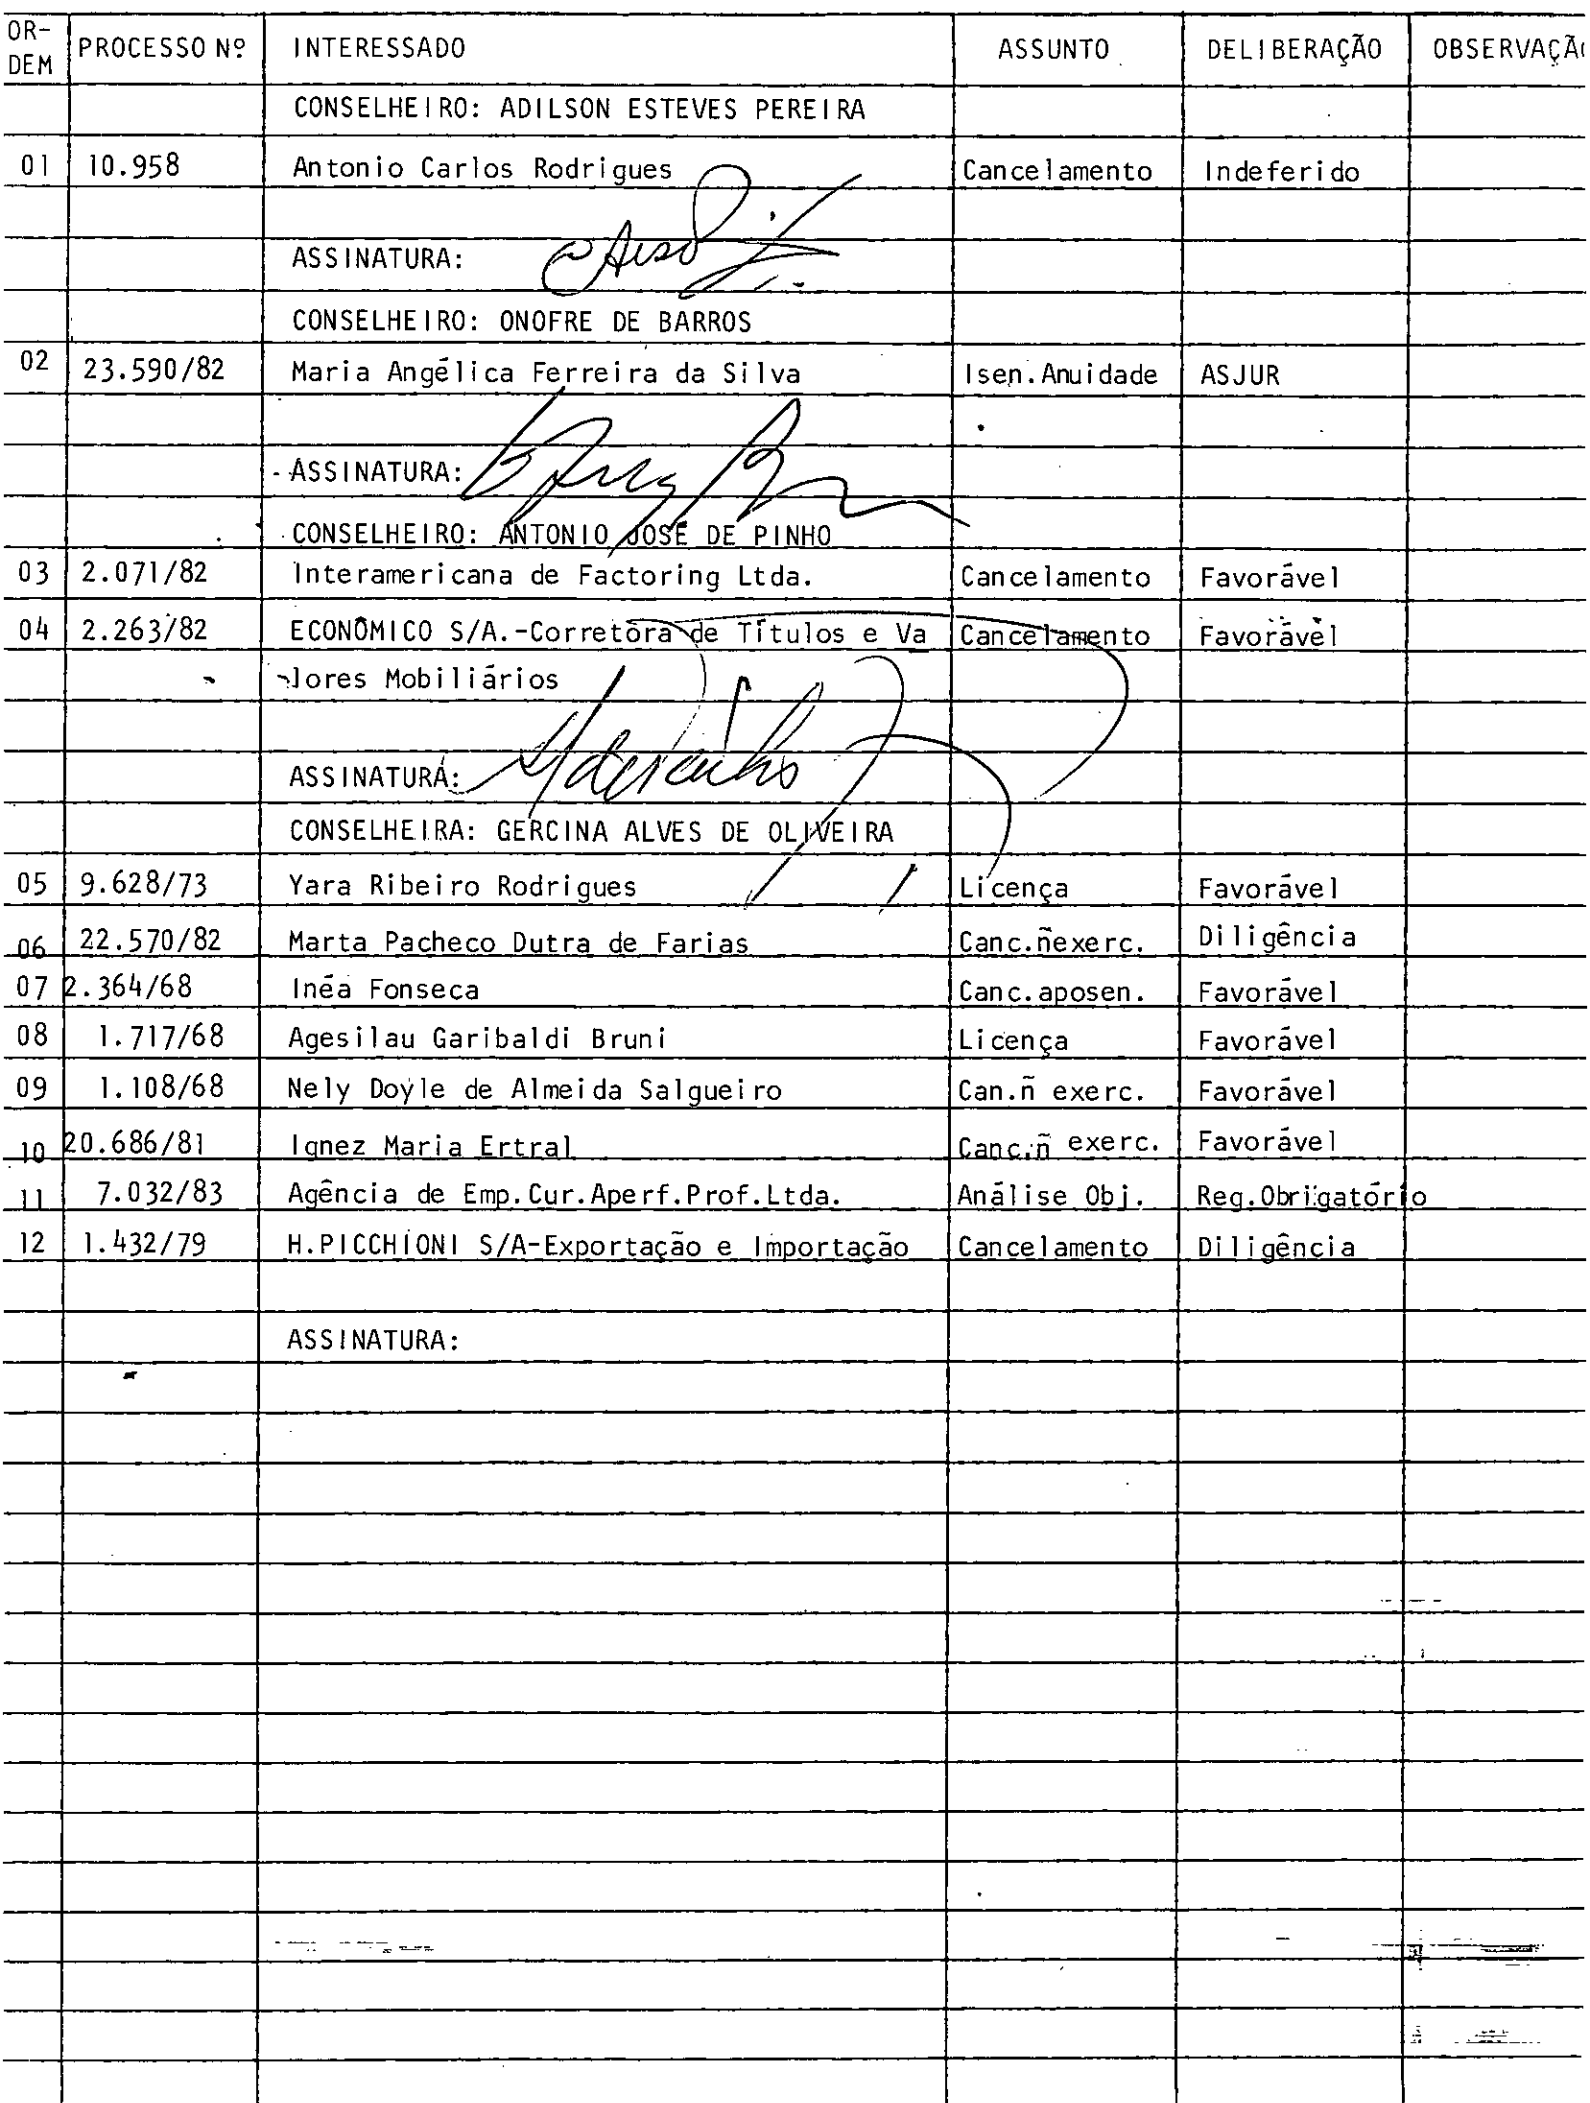 OR-
DEM PROCESSO Nº INTERESSADO ASSUNTO DELIBERAÇÃO
CONSELHEIRO: ADILSON ESTEVES PEREIRA
01 10.958 Antonio Carlos Rodrigues Cancelamento Indeferido
ASSINATURA:
CONSELHEIRO: ONOFRE DE BARROS
02 23.590/82 Maria Angélica Ferreira da Silva Isen.Anuidade ASJUR
ASSINATURA:
CONSELHEIRO: ANTONIO JOSÉ DE PINHO
03 2.071/82 Interamericana de Factoring Ltda. Cancelamento Favorável
04 2.263/82 ECONÔMICO S/A.-Corretora de Títulos e Va Cancelamento Favorável
lores Mobiliários
ASSINATURA:
CONSELHEIRA: GERCINA ALVES DE OLIVEIRA
05 9.628/73 Yara Ribeiro Rodrigues Licença Favorável
06 22.570/82 Marta Pacheco Dutra de Farias Canc.ñexerc. Diligência
07 2.364/68 Inéa Fonseca Canc.aposen. Favorável
08 1.717/68 Agesilau Garibaldi Bruni Licença Favorável
09 1.108/68 Nely Doyle de Almeida Salgueiro Can.ñ exerc. Favorável
10 20.686/81 Ignez Maria Ertral Canc.ñ exerc. Favorável
11 7.032/83 Agência de Emp.Cur.Aperf.Prof.Ltda. Análise Obj. Reg.Obrigatório
12 1.432/79 H.PICCHIONI S/A-Exportação e Importação Cancelamento Diligência
ASSINATURA: